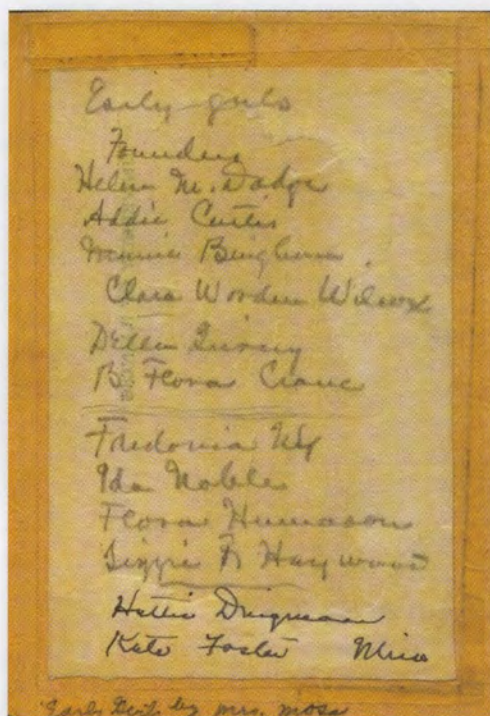 Early girls
Founders
Helen M. Dodge
Addie Curtis
Minnie Bingham
Clara Worden Wilcox
Della
B Flora Crane
Fredonia NY
Ida Noble
Flora Humason
Lizzie F Haywood
Hattie Dingman
Kate Foster Miss
Early by Mrs. Moss